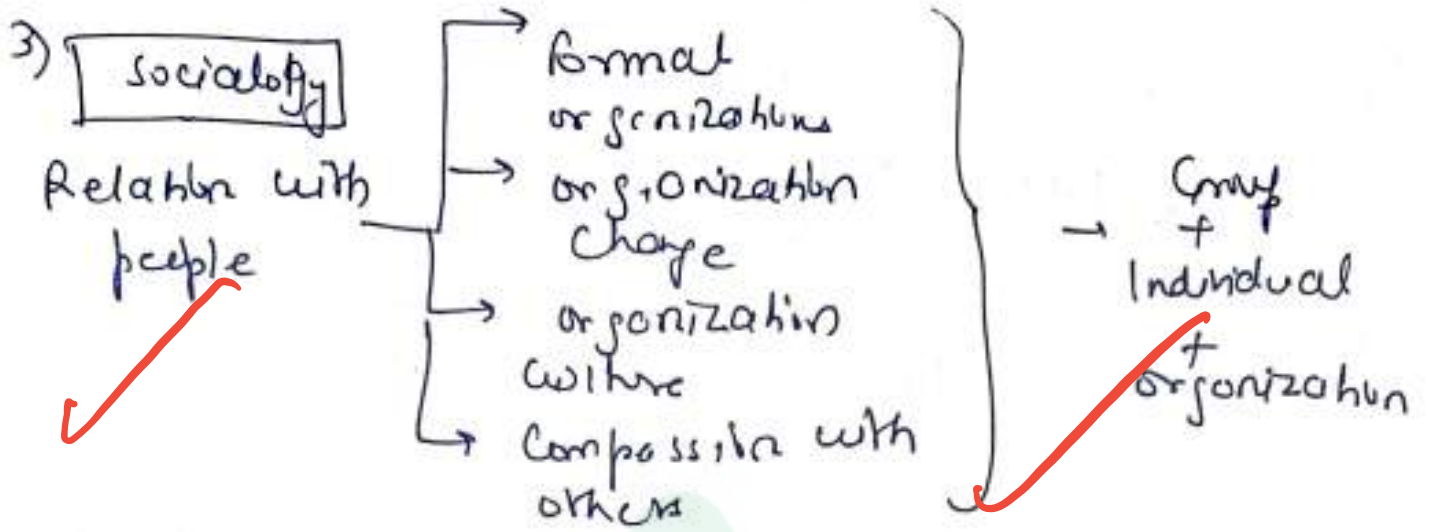 3) Sociology
Relation with
people
formal
organizations
organization
change
organization
culture
Compassion with
others
Group
+
Individual
+
organization